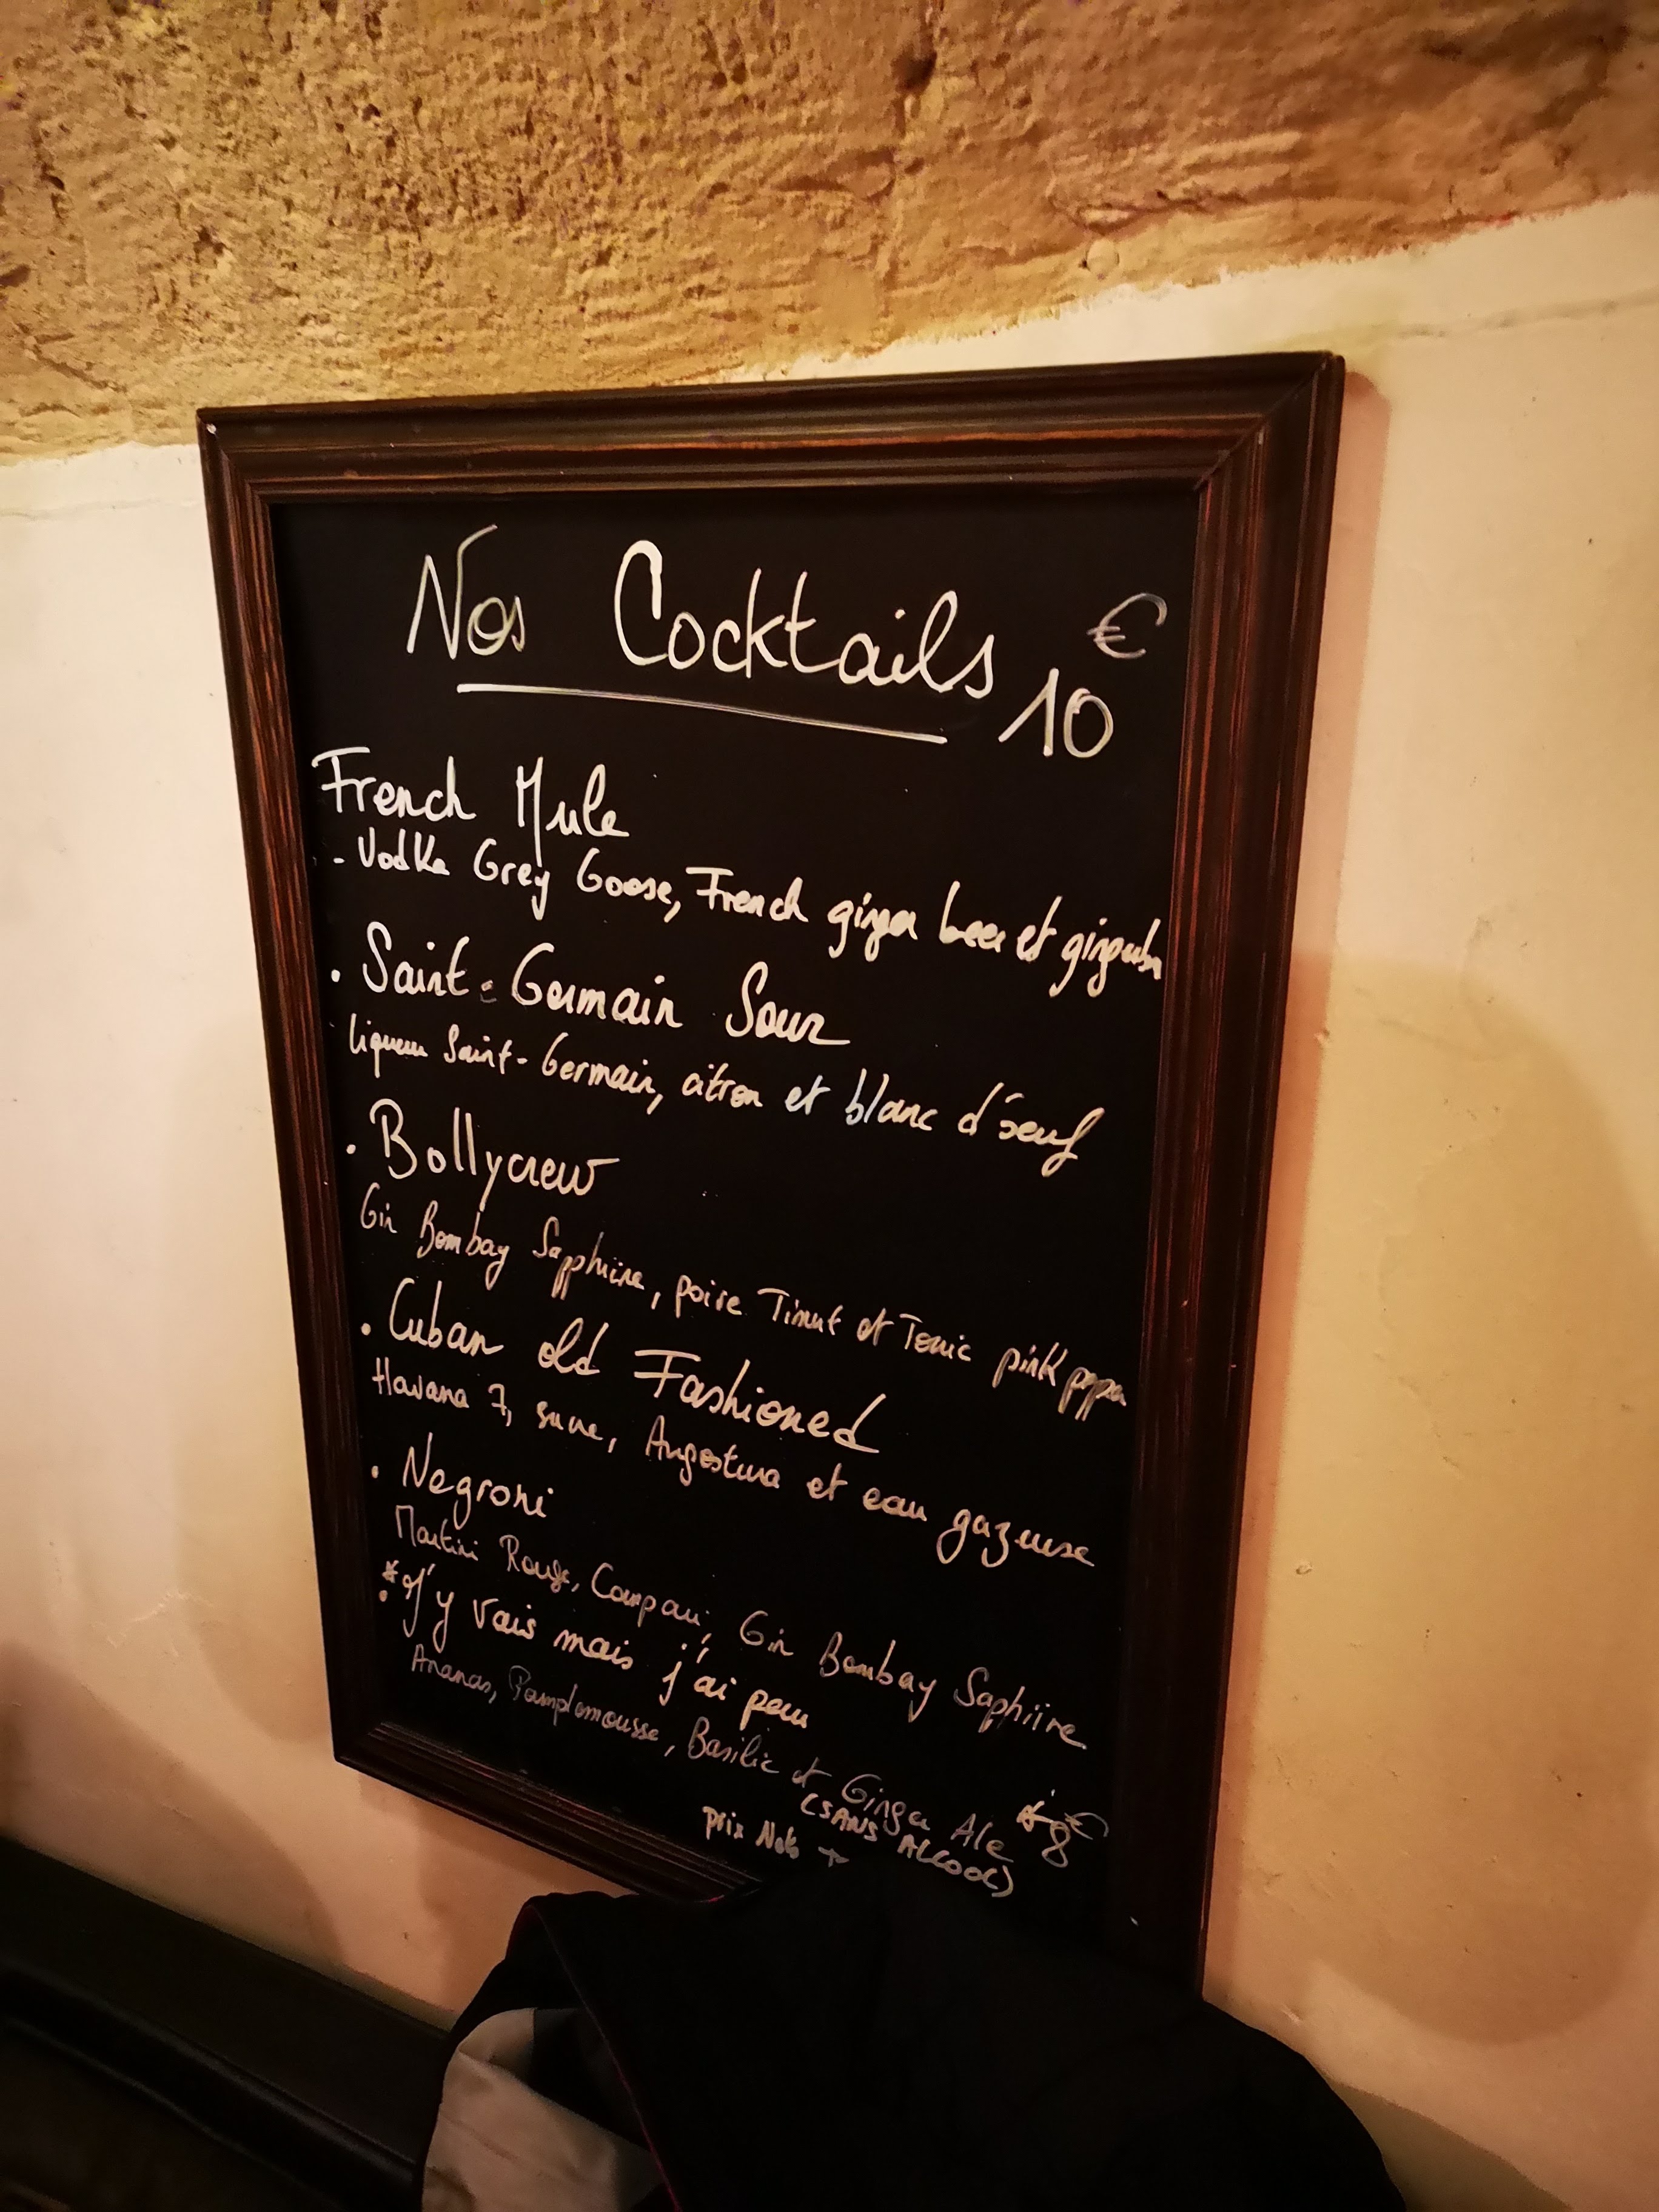 Nos Cocktails €
10
French Mule
- Vodka Grey Goose, French ginger beer et
. Saint-Germain Sour
liqueur Saint-Germain, citron et blanc d'oeuf
. Bollycrew
Gin Bombay Sapphire, poire Timut et Tonic pink pepper
. Cuban old Fashioned
Havana 7, sucre, Angostura et eau gazeuse
. Negroni
Martini Rouge, Campari, Gin Bombay Saphire
* J'y vais mais j'ai peur
Ananas, Pamplemousse, Basilic et Ginger Ale 8€
(SANS ALCOOL)
prix Nets